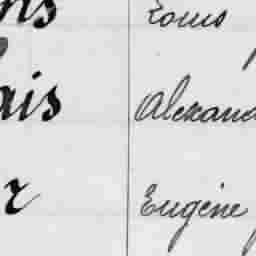 Louis
ais Alexand
r Eugène